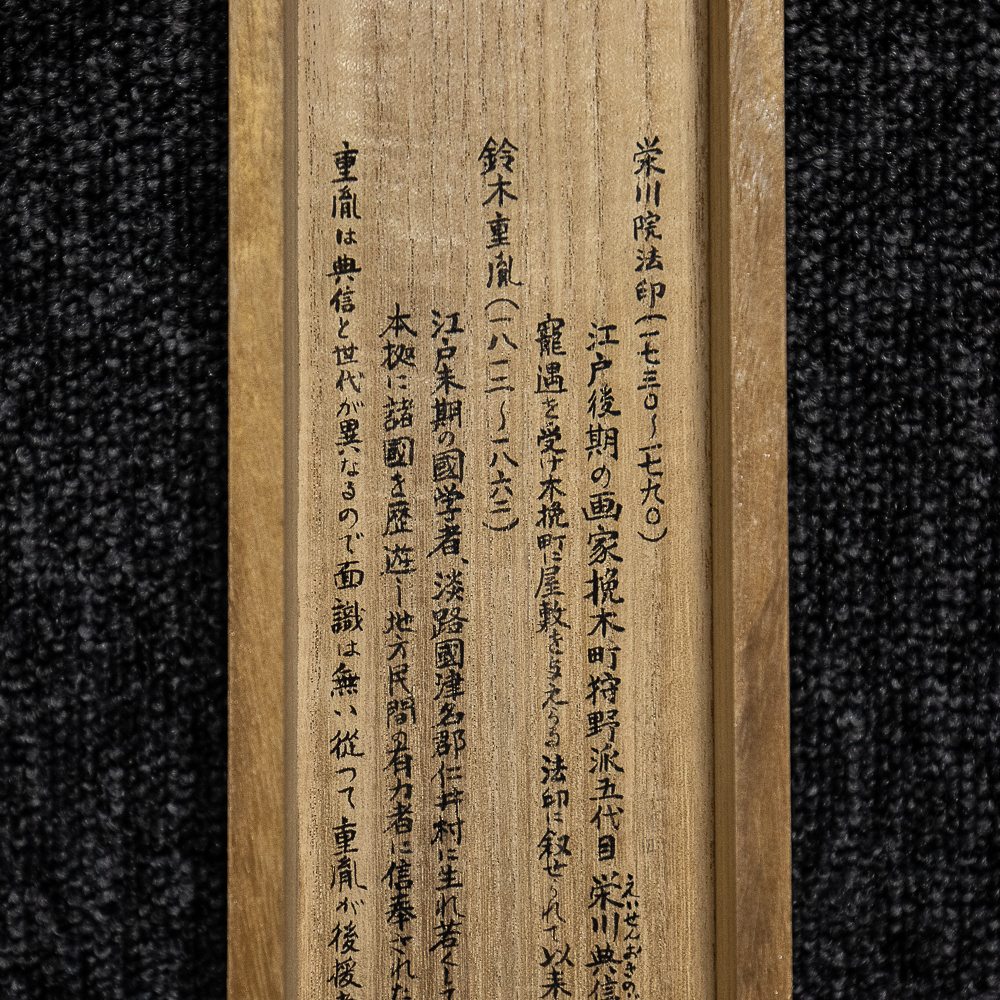 栄川院法印(一七三〇〜一七九〇)
江戸後期の画家挽木町狩野派五代目 栄川典信
えいせんおきの
寵遇を受け木挽町に屋敷を与えらる法印に叙せられて以来
鈴木重胤(一八一二〜一八六三)
江戸末期の國学者、淡路國津名郡仁井村に生れ若くして
本拠に諸國を歴遊し地方民間の有力者に信奉された
重胤は典信と世代が異なるので面識は無い従つて重胤が後援